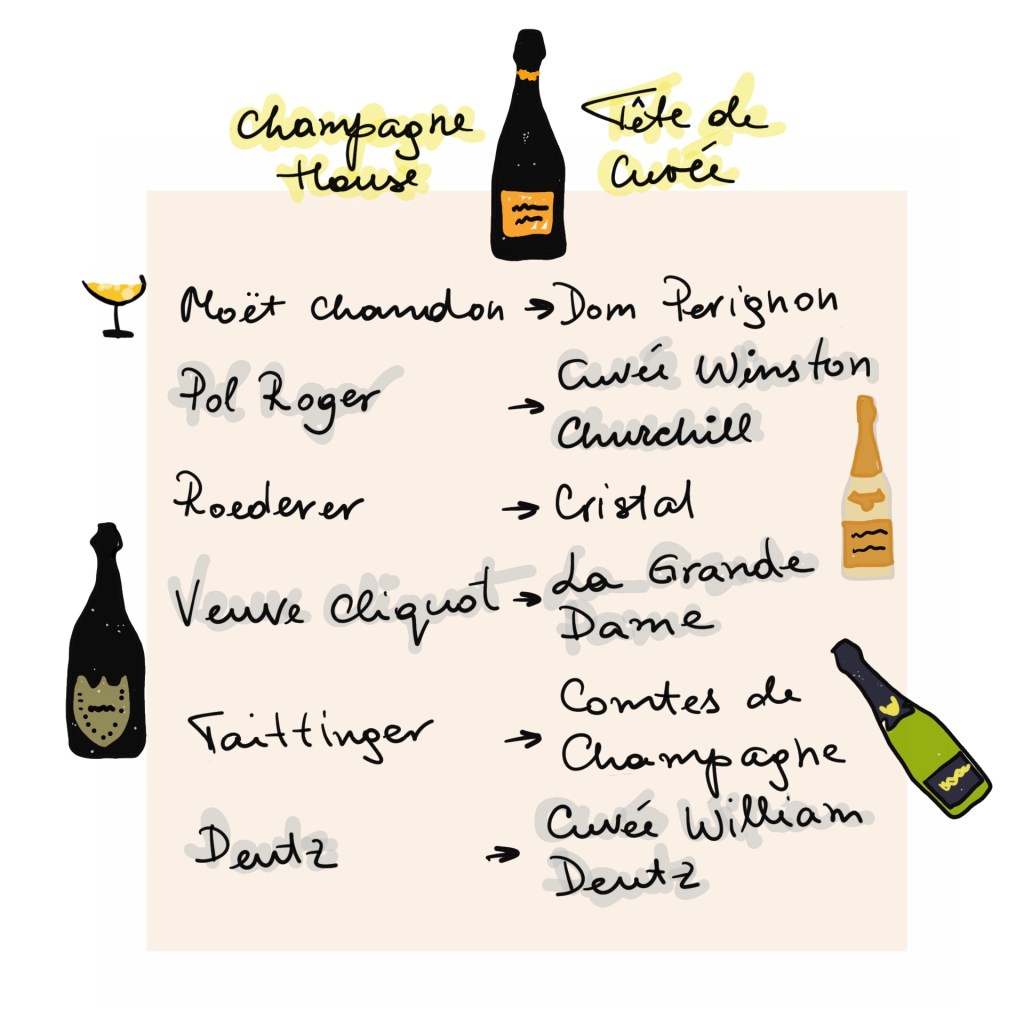 Champagne
House
Tête de
Cuvée
Moët Chandon → Dom Perignon
Pol Roger → Cuvée Winston
Churchill
Roederer → Cristal
Veuve Cliquot → La Grande
Dame
Taittinger → Comtes de
Champagne
Deutz → Cuvée William
Deutz